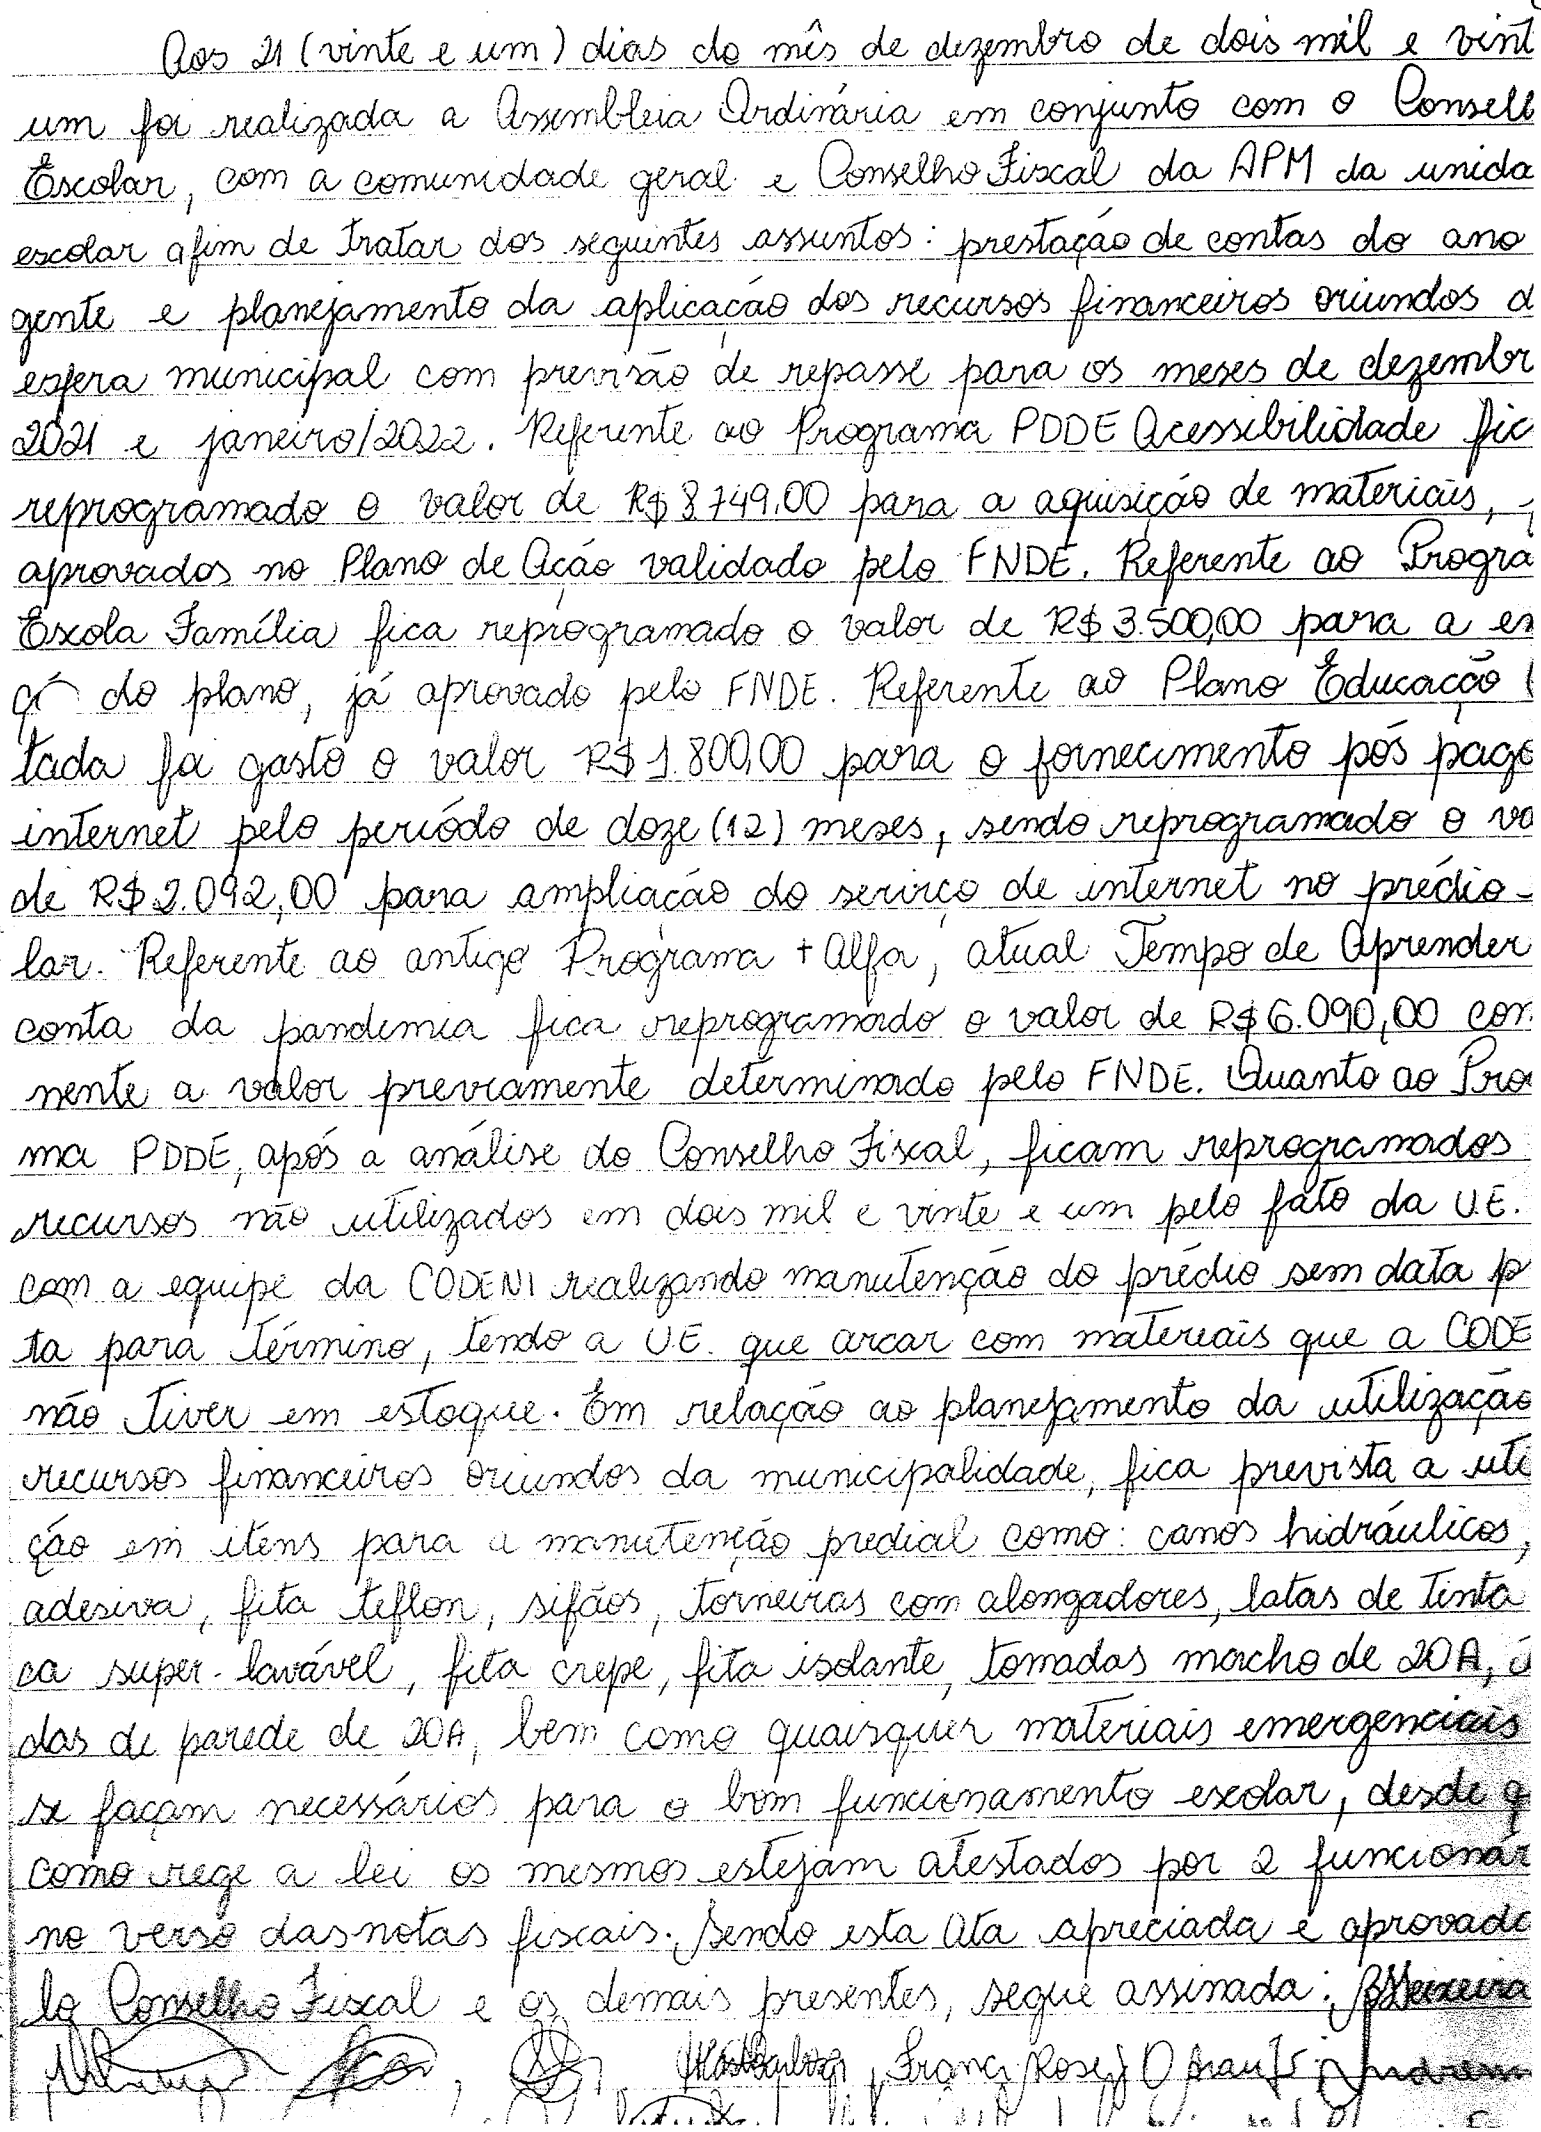 Aos 21 (vinte e um) dias do mês de dezembro de dois mil e vint
um foi realizada a Assembleia Ordinária em conjunto com o Consell
Escolar, com a comunidade geral e Conselho Fiscal da APM da unida
escolar afim de tratar dos seguintes assuntos: prestação de contas do ano
gente e planejamento da aplicação dos recursos financeiros oriundos d
esfera municipal com previsão de repasse para os meses de dezembr
2021 e janeiro/2022. Referente ao Programa PDDE Acessibilidade fic
reprogramado o valor de R$ 8.749,00 para a aquisição de materiais,
aprovados no Plano de Ação validado pelo FNDE. Referente ao Progra
Escola Família fica reprogramado o valor de R$ 3.500,00 para a ex
çã do plano, já aprovado pelo FNDE. Referente ao Plano Educação
tada foi gasto o valor R$ 1.800,00 para o fornecimento pós pago
internet pelo período de doze (12) meses, sendo reprogramado o va
de R$ 2.092,00 para ampliação do serviço de internet no prédio -
lar. Referente ao antigo Programa + Alfa, atual Tempo de Aprender
conta da pandemia fica reprogramado o valor de R$ 6.090,00 con
nente a valor previamente determinado pelo FNDE. Quanto ao Pro
ma PDDE, após a análise do Conselho Fiscal, ficam reprogramados
recursos não utilizados em dois mil e vinte e um pelo fato da U.E.
com a equipe da CODENI realizando manutenção do prédio sem data p
ta para término, tendo a U.E. que arcar com materiais que a CODE
não tiver em estoque. Em relação ao planejamento da utilização
recursos financeiros oriundos da municipalidade, fica prevista a uti
ção em itens para a manutenção predial como: canos hidráulicos,
adesiva, fita teflon, sifãos, torneiras com alongadores, latas de tinta
ca super-lavável, fita crepe, fita isolante, tomadas macho de 20A,
das de parede de 20A, bem como quaisquer materiais emergenciais
se façam necessários para o bom funcionamento escolar, desde q
como rege a lei os mesmos estejam atestados por 2 funcionár
no verso das notas fiscais. Sendo esta Ata apreciada e aprovada
lo Conselho Fiscal e os demais presentes, segue assinada: